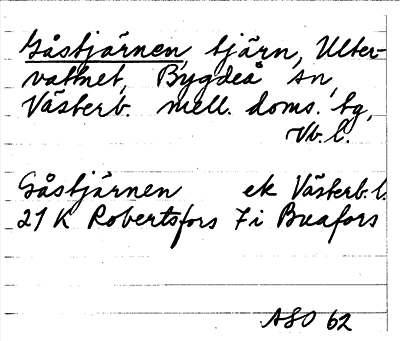 Gåstjärnen, tjärn, Ulter-
vattnet, Bygdeå sn,
Västerb. mell. doms. tg,
Vb. l.
Gåstjärnen ek Västerb. l.
21 K Robertsfors 7 i Buafors
ASO 62